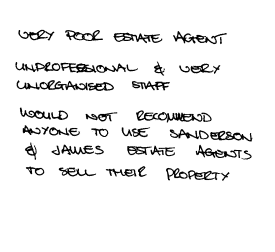 VERY POOR ESTATE AGENT
UNPROFESSIONAL & VERY
UNORGANISED STAFF
WOULD NOT RECOMMEND
ANYONE TO USE SANDERSON
& JAMES ESTATE AGENTS
TO SELL THEIR PROPERTY